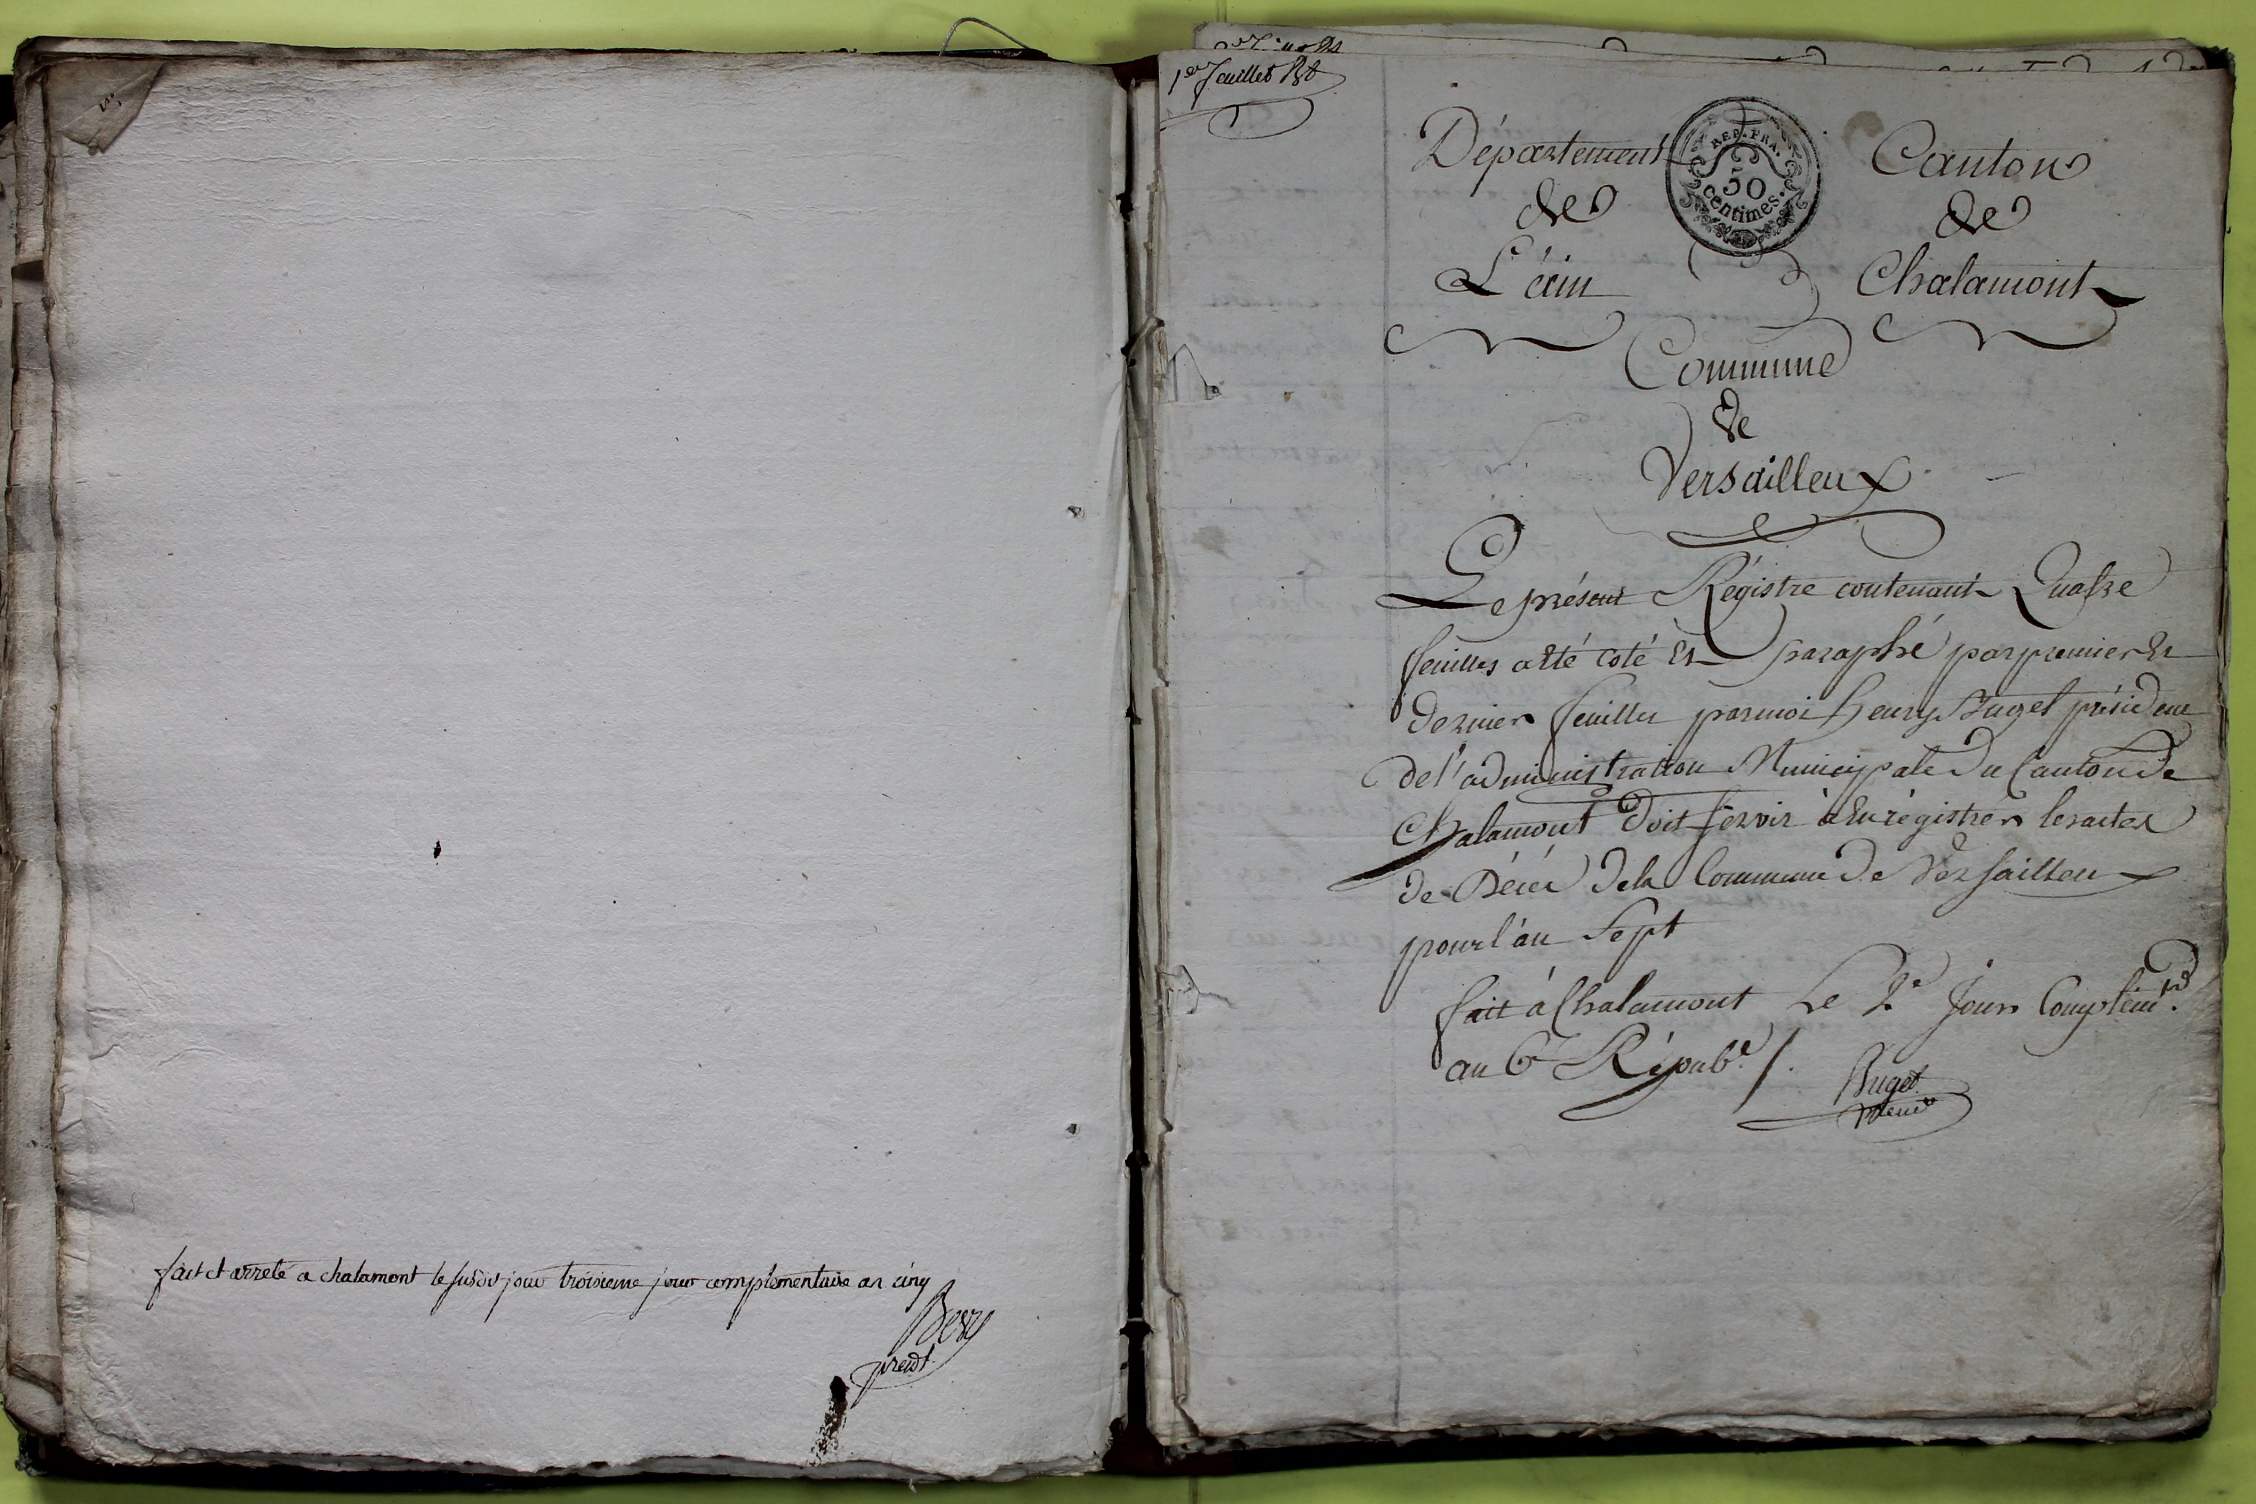 fait et arreté a chalamont le susdit jour troisieme jour complementaire an cinq
Bory
presdt.
1er feuillet
Département
de
L'ain
REP. FRA.
50
centimes.
Canton
de
Chalamont
Commune
de
Versailleux
Le présent Régistre contenant Quatre
feuilles a Eté coté Et paraphé par premier Et
dernier feuillet par moi henry Buget président
de l'administration Municipale du Canton de
Chalamont doit servir à Enrégistrer les actes
de Décès de la Commune de Versailleux
pour l'an Sept
fait à Chalamont Le 2e Jour Complém.re
an 6e Répub.e /.
Buget